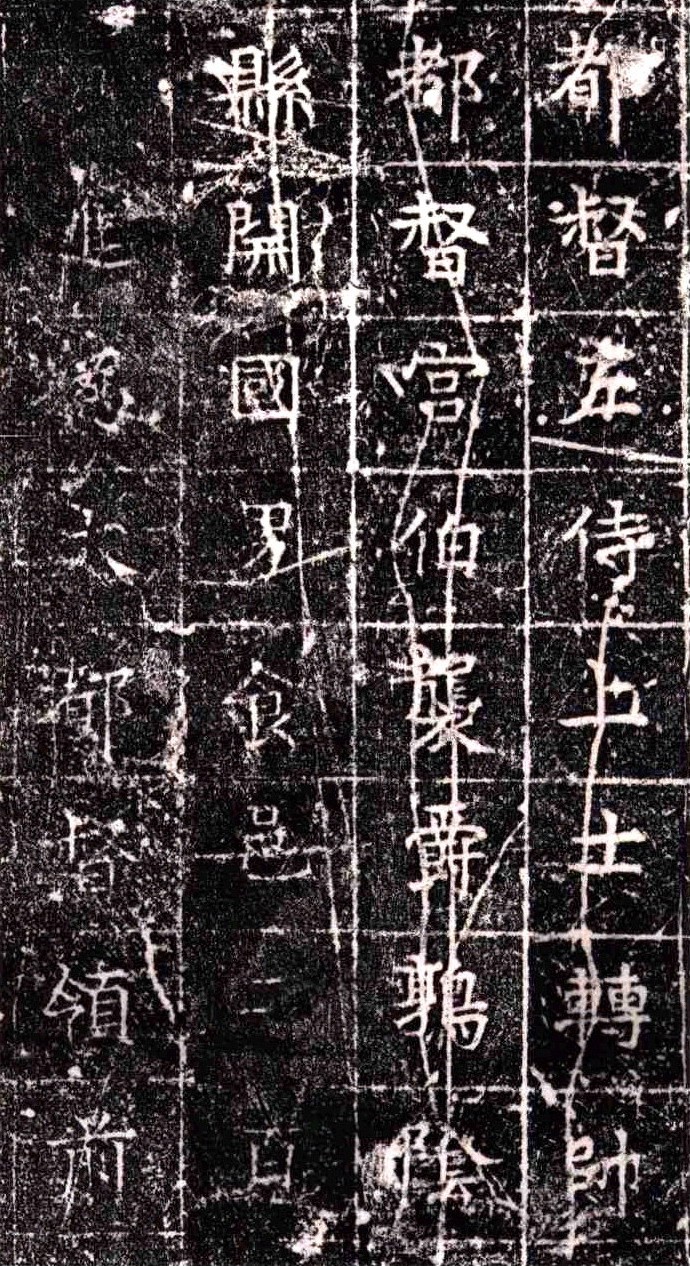 都督左侍上士轉帥
都督宮伯襲爵鶉陰
縣開國男食邑二百
進爲大都督領前